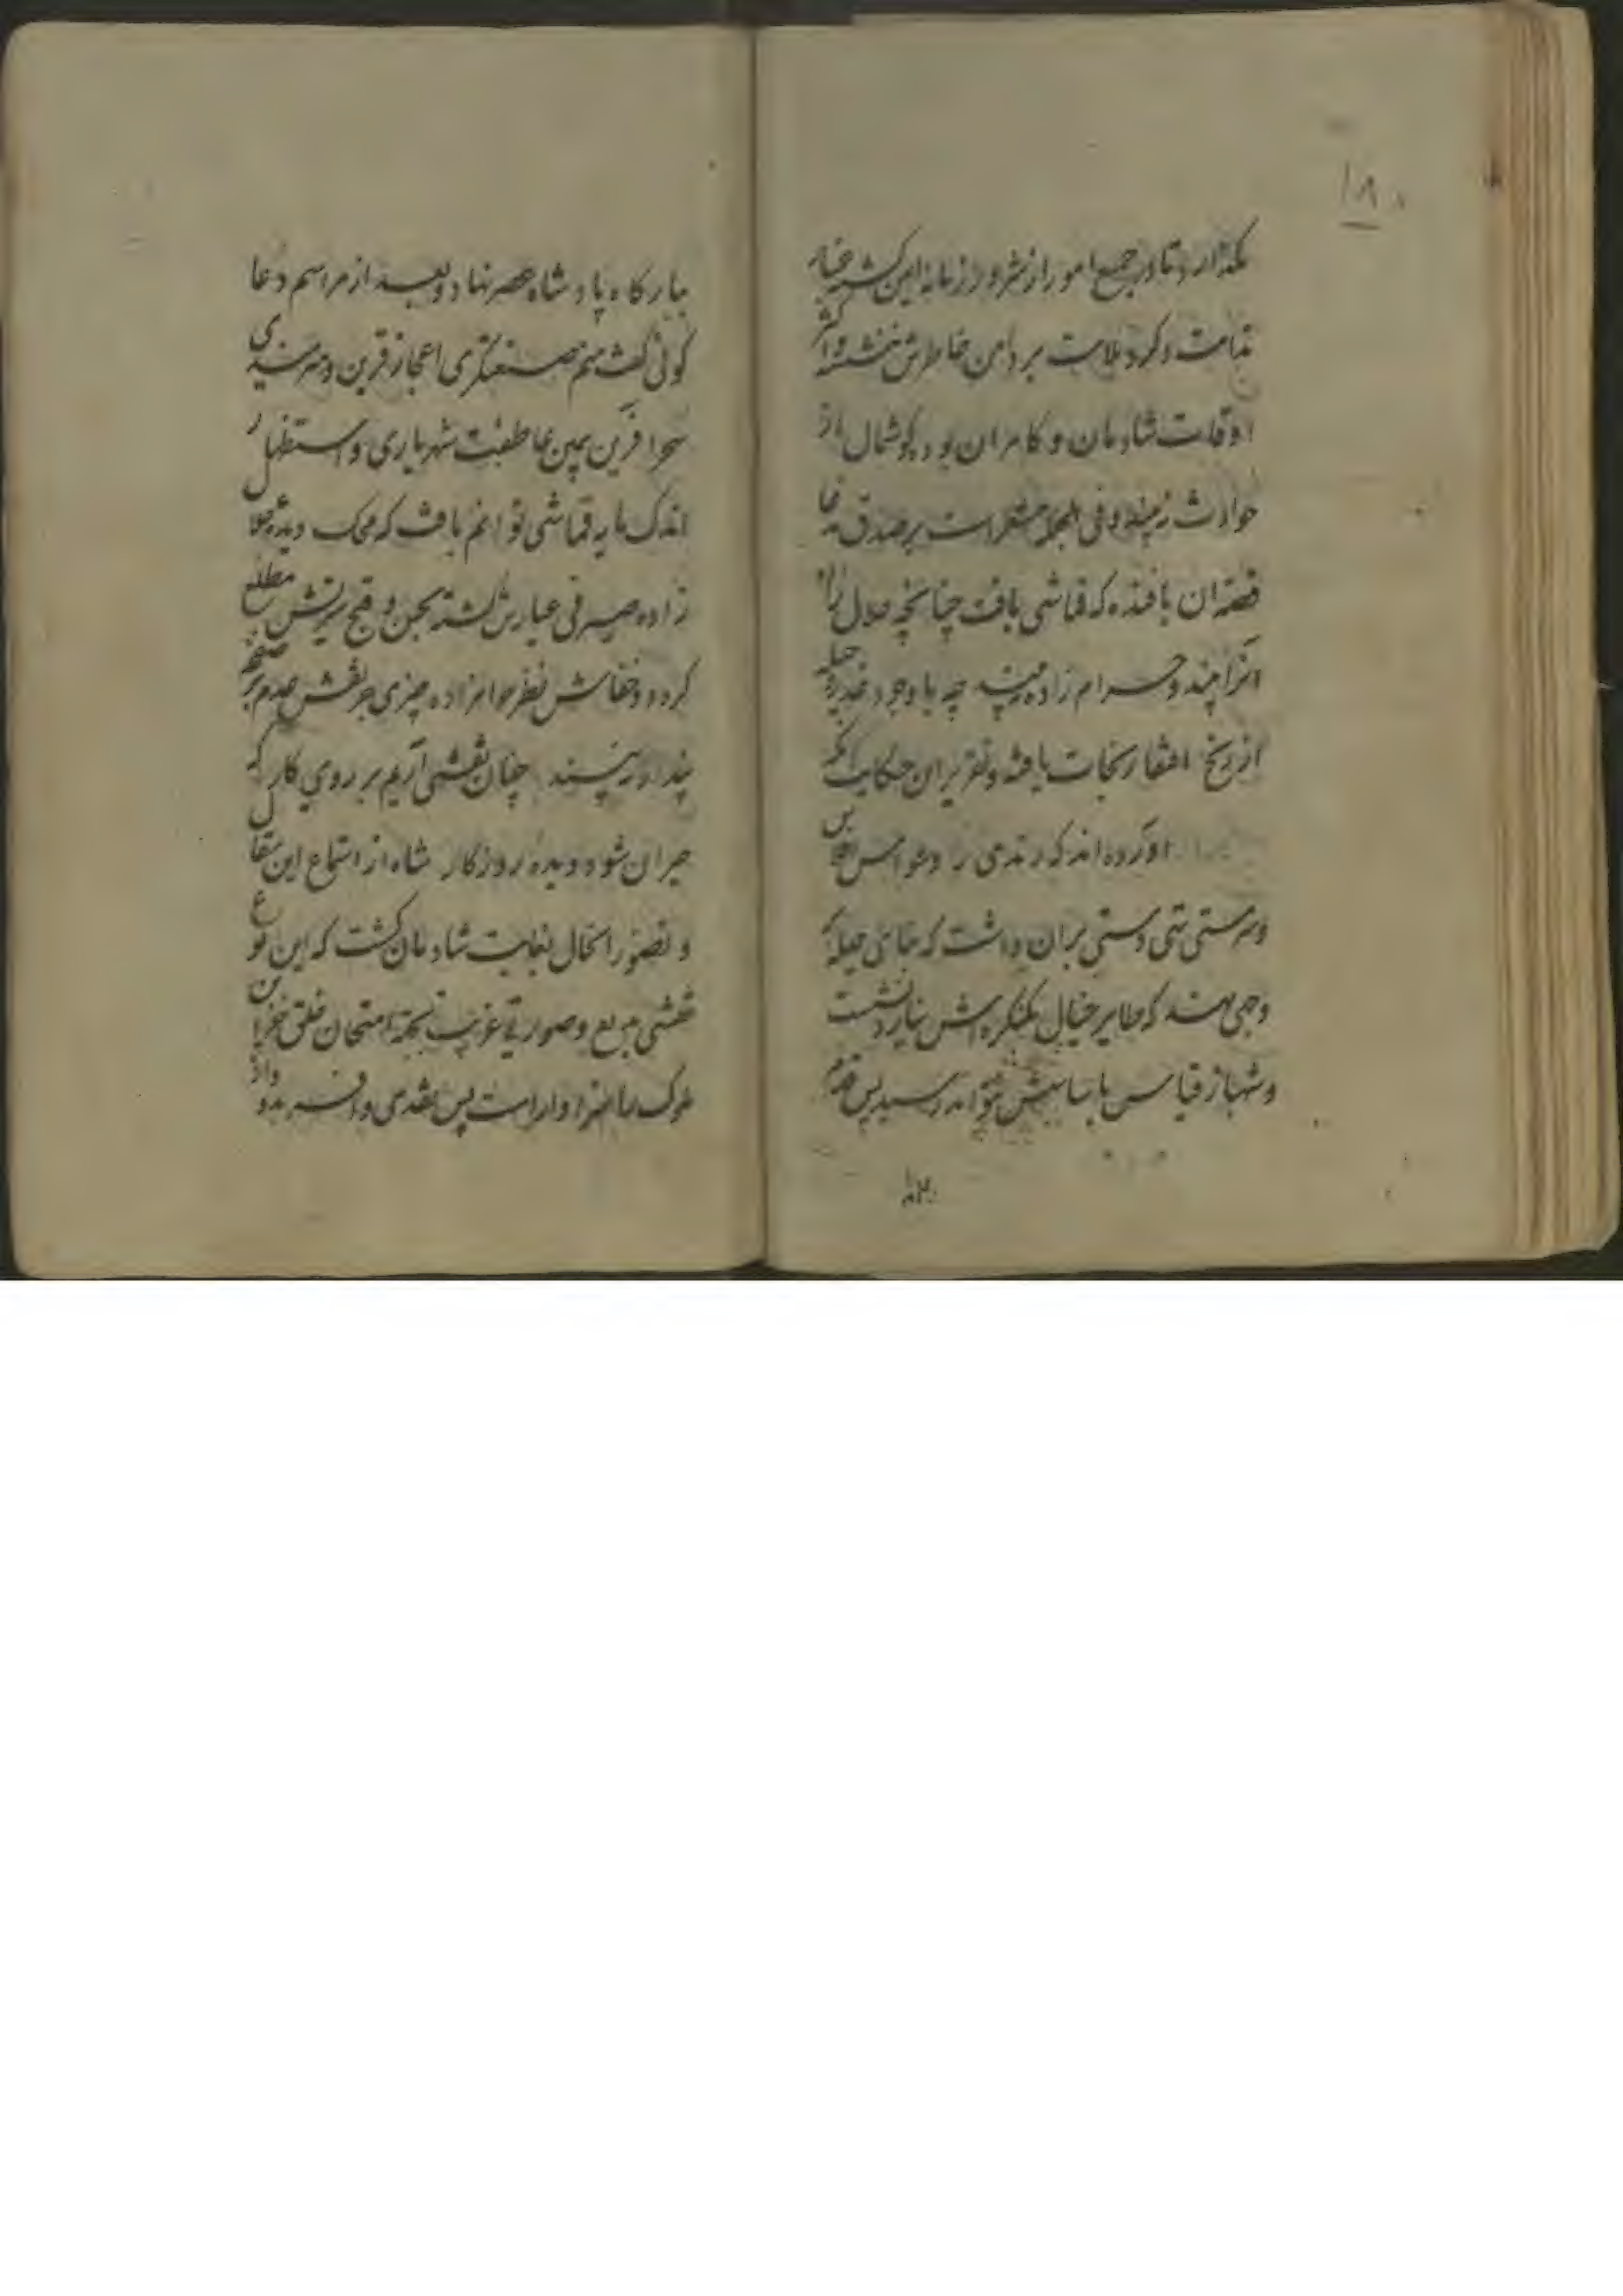 ۱۸
بگذارد تا در جمیع امور از شر و رز زمانه ایمن گشته غبار
ندامت و گرد ملامت بر دامن خاطرش ننشیند
اوقات شادمان و کامران بود و گوشمال از
حوادث نبیند و فی الجمله مشعر است بر صدق
قصه ان بافنده که قماشی بافت چنانچه حلال زاده
انرا بیند و حرام زاده نبیند چه با وجود حیله
از رنج افتقار نجات یافته و تقریر ان حکایت انکه
اورده اند که رندی در
و سرمستی تهی دستی بران داشت که جای حیله
وجهی نهد که طایر خیال بکنگره اش نیارد نشست
و شهباز قیاس باساسش نتواند رسید پس قدم
ببارگاه پادشاه عصر نهاد و بعد از مراسم دعا
کوئی گفت منم صنعتگری اعجاز قرین و هنرمندی
سحرافرین بیمن عاطفت شهریاری و استظهار
اندک مایه قماشی توانم بافت که محک دیده حلال
زاده صیرفی عیارش گشته بحسن و قبح مطلع
کردد و خفاش نظر حرامزاده چیزی جز نقش عدم بر صفحه
پندار نبیند چنان نقشی آریم بر روی کار که
حیران شود دیده روزگار شاه از استماع این مقال
و تصور انحال بغایت شادمان گشت که این نوع
نقشی بدیع و صورتی غریب بجهة امتحان خلق خزاین
ملوک را سزاوار است پس نقدی وافر بدو